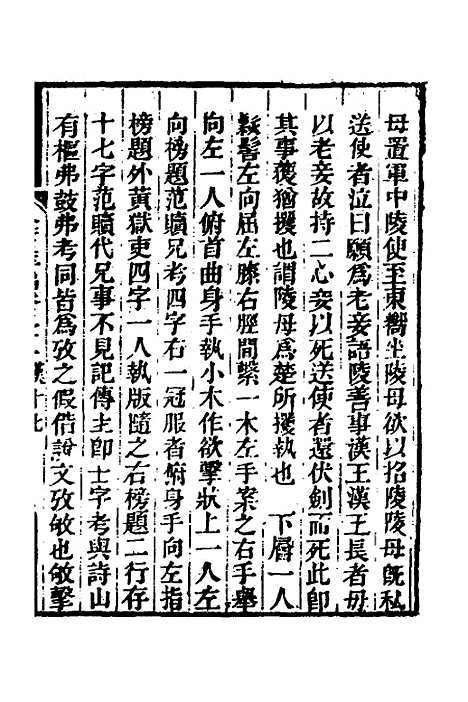 母置軍中陵使至東嚮坐陵母欲以招陵陵母既私
送使者泣曰願為老妾語陵善事漢王漢王長者毋
以老妾故持二心妾以死送使者遂伏劍而死此即
其事獲猶援也謂陵母為楚所援執也　下層一人
髡髻左向屈左膝右脛間繫一木左手案之右手舉
向左一人俯首曲身手執小木作欲擊狀上一人左
向榜題范贖兄考四字右一冠服者俯身手向左指
榜題外黃獄吏四字一人執版隨之右榜題二行存
十七字范贖代兄事不見記傳主即士字考與詩山
有樞弗鼓弗考同皆為攷之假借說文攷敂也敂擊
漢十七